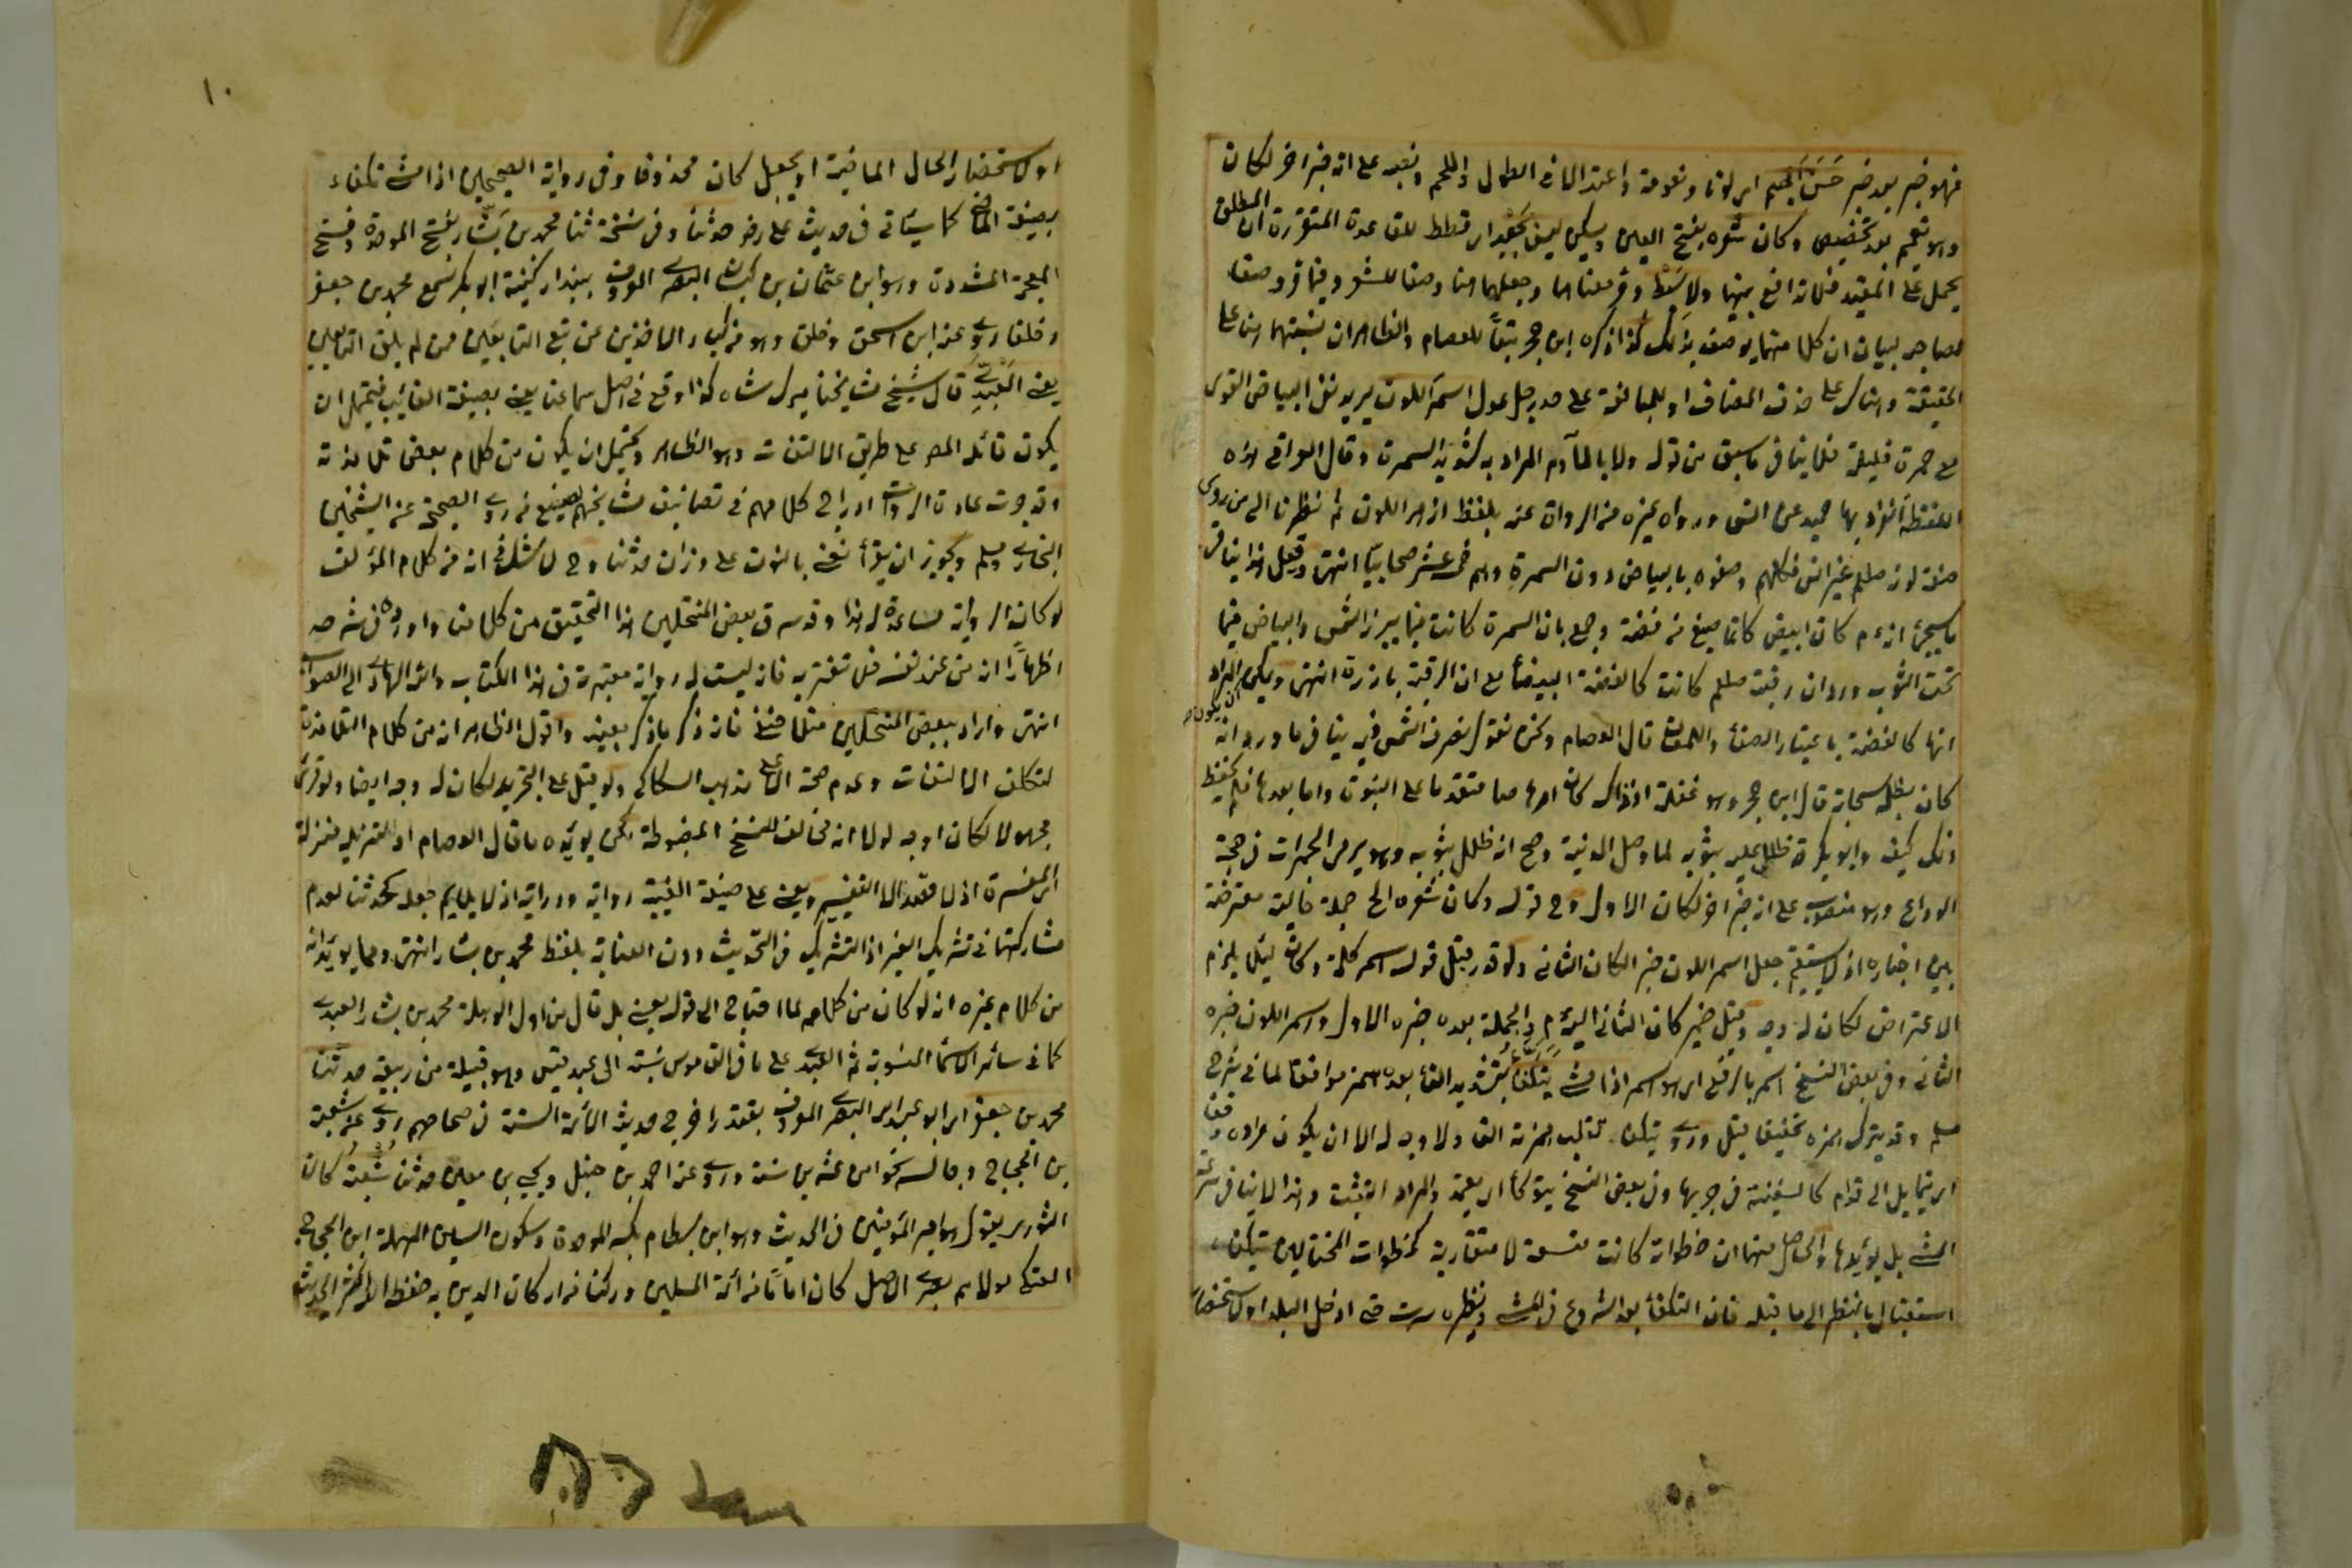 فهو خبر بعد خبر حَسَنَ الجسم اي لونا ونعومة واعتدالا في الطول واللحم ونصبه على انه خبر اخر لكان
وهو تعميم بعد تخصيص وكان شعره بفتح العين ويسكن ليس بجَعْدٍ اي قطط للقاعدة المتقررة ان المطلق
يحمل على المقيد فلا تدافع بينهما ولا سَبْطٍ ومر معناهما وجعلهما هنا وصفا للشعر وفيما مر وصفا
لصاحبه لبيان ان كلا منهما يوصف بذلك كذا ذكره ابن حجر تبعا للعصام والظاهر ان نسبتهما هنا على
الحقيقة وهناك على حذف المضاف او للمبالغة على حد رجل عدل اسمرَ اللون يريد نفي البياض القوي
مع حمرة قليلة فلا ينافي ما سبق من قوله ولا بالآدم المراد به شديد السمرة وقال العراقي هذه
اللفظة انفرد بها حميد عن انس ورواه غيره من الرواة عنه بلفظ ازهر اللون ثم نظرنا الى من روى
صفة لونه صلعم غير انس فكلهم وصفوه بالبياض دون السمرة وهم خمسة عشر صحابيا انتهى وقيل هذا ينافي
ما سيجئ انه ءم كان ابيض كانما صيغ من فضة وجمع بان السمرة كانت فيما يبرز للشمس والبياض فيما
تحت الثوب ورد ان رقبته صلعم كانت كالفضة البيضاء مع ان الرقبة بارزة انتهى ويمكن ان يكون المراد
انها كالفضة باعتبار الصفاء واللمعان قال العصام ونحن نقول تصرف الشمس فيه ينافي ما ورد انه
كان يظله سحابة قال ابن حجر وهو غفلة اذ ذاك كان ارهاصا متقدما على النبوة واما بعدها فلم يحفظ
ذلك كيف وابو بكر قد ظلل عليه بثوبه لما وصل المدينة وصح انه ظلل بثوبه وهو يرمي الجمرات في حجة
الوداع وهو منصوب على انه خبر اخر لكان الاول وفي قوله وكان شعره الخ جملة حالية معترضة
بين اخباره اذ لا يستقيم جعل اسمر اللون خبر الكان الثاني ولو قدر قبل قوله اسمر كلمة وكان لئلا يلزم
الاعتراض لكان له وجه وقيل ضمير كان الثاني اليه ءم والجملة بعده خبره الاول واسمر اللون خبره
الثاني وفي بعض النسخ اسمر بالرفع اي هو اسمر اذا مشى يتكفأ بتشديد الفاء بعده همز موافقا لما في شرح
مسلم وقد يترك همزه تخفيفا قيل وروي بقلب همزته الفا ولا وجه له الا ان يكون مراده وقفا
اي يتمايل الى قدام كالسفينة في جريها وفي بعض النسخ يتوكأ اي يعتمد والمراد التثبت وهذا لا ينافي سرعة
المشي بل يؤيدها والحاصل منهما ان خطواته كانت متسعة لا متقاربة كخطوات المختالين
استقبال بالنظر الى ما قبله فان التكفأ بعد الشروع في المشي ونظيره سرت حتى ادخل البلد او لاستحضار
١٠
او لاستحضار الحال الماضية او بجعل كان محذوفا وفي رواية الصحيحين اذا مشى تكفاء
بصيغة الماضي كما سيأتي في حديث علي رضي حدثنا وفي نسخة ثنا محمد بن بشَّار بفتح الموحدة وفتح
المعجمة المشددة وهو ابن عثمان بن كيسان البصري المعروف ببندار كنيته ابو بكر سمع محمد بن جعفر
وخلقا روى عنه ابن اسحق وخلق وهو من كبار الآخذين عن تبع التابعين ممن لم يلق التابعين
يعني العَبْدِيّ قال شيخ مشايخنا ميرك شاه كذا وقع في اصل سماعنا يعني بصيغة الغائب فيحتمل ان
يكون قائله المص على طريق الالتفات وهو الظاهر ويحتمل ان يكون من كلام بعض تلامذته
وقد جرت عادة الرواة ادراج كلامهم في تصانيف مشايخهم كصنيع من روى الصحيح عن الشيخين
البخاري ومسلم ويجوز ان يقرأ نعني بالنون على وزان حدثنا وح لا شك في انه من كلام المؤلف
لو كان الرواية مساعدة لهذا وقد سرق بعض المنتحلين هذا التحقيق من كلامنا واورده في شرحه
اظهارا انه من عند نفسه فلا تغتر به فانه ليست له رواية معتبرة في هذا الكتاب والله الهادي الى الصواب
انتهى واراد ببعض المنتحلين فانه ذكر ما ذكر بعينه واقول الظاهر انه من كلام التلامذة
لتكلف الالتفات وعدم صحة الا على مذهب السكاكي ولو قيل على التجريد لكان له وجه ايضا ولو قرئ
مجهولا لكان اوجه لولا انه مخالف للنسخ المضبوطة لكن يؤيده ما قال العصام
المفسرة اذ لا مقصد الا التفسير ويعني على صيغة الغيبة رواية ودراية اذ لا يلايم جعله كحدثنا لعدم
مشاركتها في تشريك الغير اذ التشريك في التحديث دون العناية بلفظ محمد بن بشار انتهى ومما يؤيد انه
من كلام غيره انه لو كان من كلامه لما احتاج الى قوله يعني بل قال من اول الوهلة محمد بن بشار العبدي
كما في سائر الاسماء المنسوبة ثم العبدي على ما في القاموس نسبة الى عبد قيس وهو قبيلة من ربيعة حدثنا
محمد بن جعفر اي ابو عبد الله البصري المعروف بغندر اخرج حديثه الائمة الستة في صحاحهم روى عنه شعبة
بن الحجاج وجالسه نحوا من عشرين سنة وروى عنه احمد بن حنبل ويحيى بن معين حدثنا شُعْبَةُ كان
الثوري يقول هو امير المؤمنين في الحديث وهو ابن بسطام بكسر الموحدة وسكون السين المهملة ابن الحجاج
العتكي مولاهم بصري الاصل كان اماما من ائمة المسلمين وركنا من اركان الدين به حفظ الله اكثر الحديث